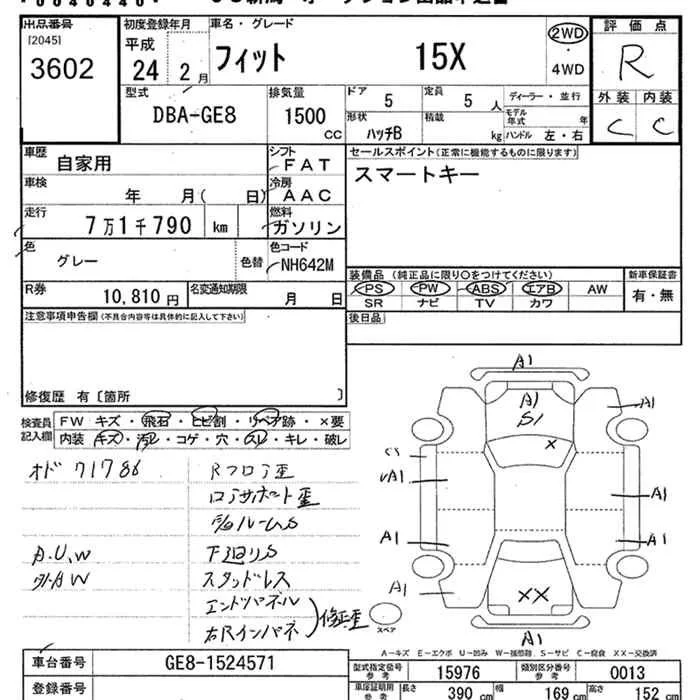 出品番号
[2045]
3602
初度登録年月
平成
24 2 月
車名・グレード
フィット 15X
2WD
・
4WD
評価点
R
外装 内装
C C
型式
DBA-GE8
排気量
1500
CC
ドア 5
定員 5 人
ディーラー・並行
形状 ハッチB
積載 kg
モデル年式 年
ハンドル 左・右
車歴
自家用
シフト
FAT
車検
年 月( 日)
冷房
AAC
走行
7万1千790 km
燃料
ガソリン
色
グレー
色替
色コード
NH642M
R券
10,810 円
名変通知期限
月 日
セールスポイント(正常に機能するものに限ります)
スマートキー
装備品 (純正品に限り〇をつけてください)
新車保証書
有・無
PS PW ABS エアB AW
SR ナビ TV カワ
後日品
注意事項申告欄(不具合内容等は具体的に記入して下さい)
修復歴 有〔箇所 〕
検査員
記入欄
FW キズ・飛石・ヒビ割・リペア跡・×要
内装 キズ・汚レ・コゲ・穴・スレ・キレ・破レ
オド 71786
Rフロア歪
コアサポート歪
A.U.W
下廻りS
外AW
スタッドレス
エンドパネル
右Rインパネ
修正歪
A1
A1
S1
×
A1
A1
A1
A1
A1
A1
××
A1
スペア
A-キズ E-エクボ U-凹み W-補修跡 S-サビ C-腐食 XX-交換済
車台番号
GE8-1524571
登録番号
型式指定番号
参考
15976
類別区分番号
参考
0013
車庫証明用
参考
長さ 390 cm
幅 169 cm
高さ 152 cm